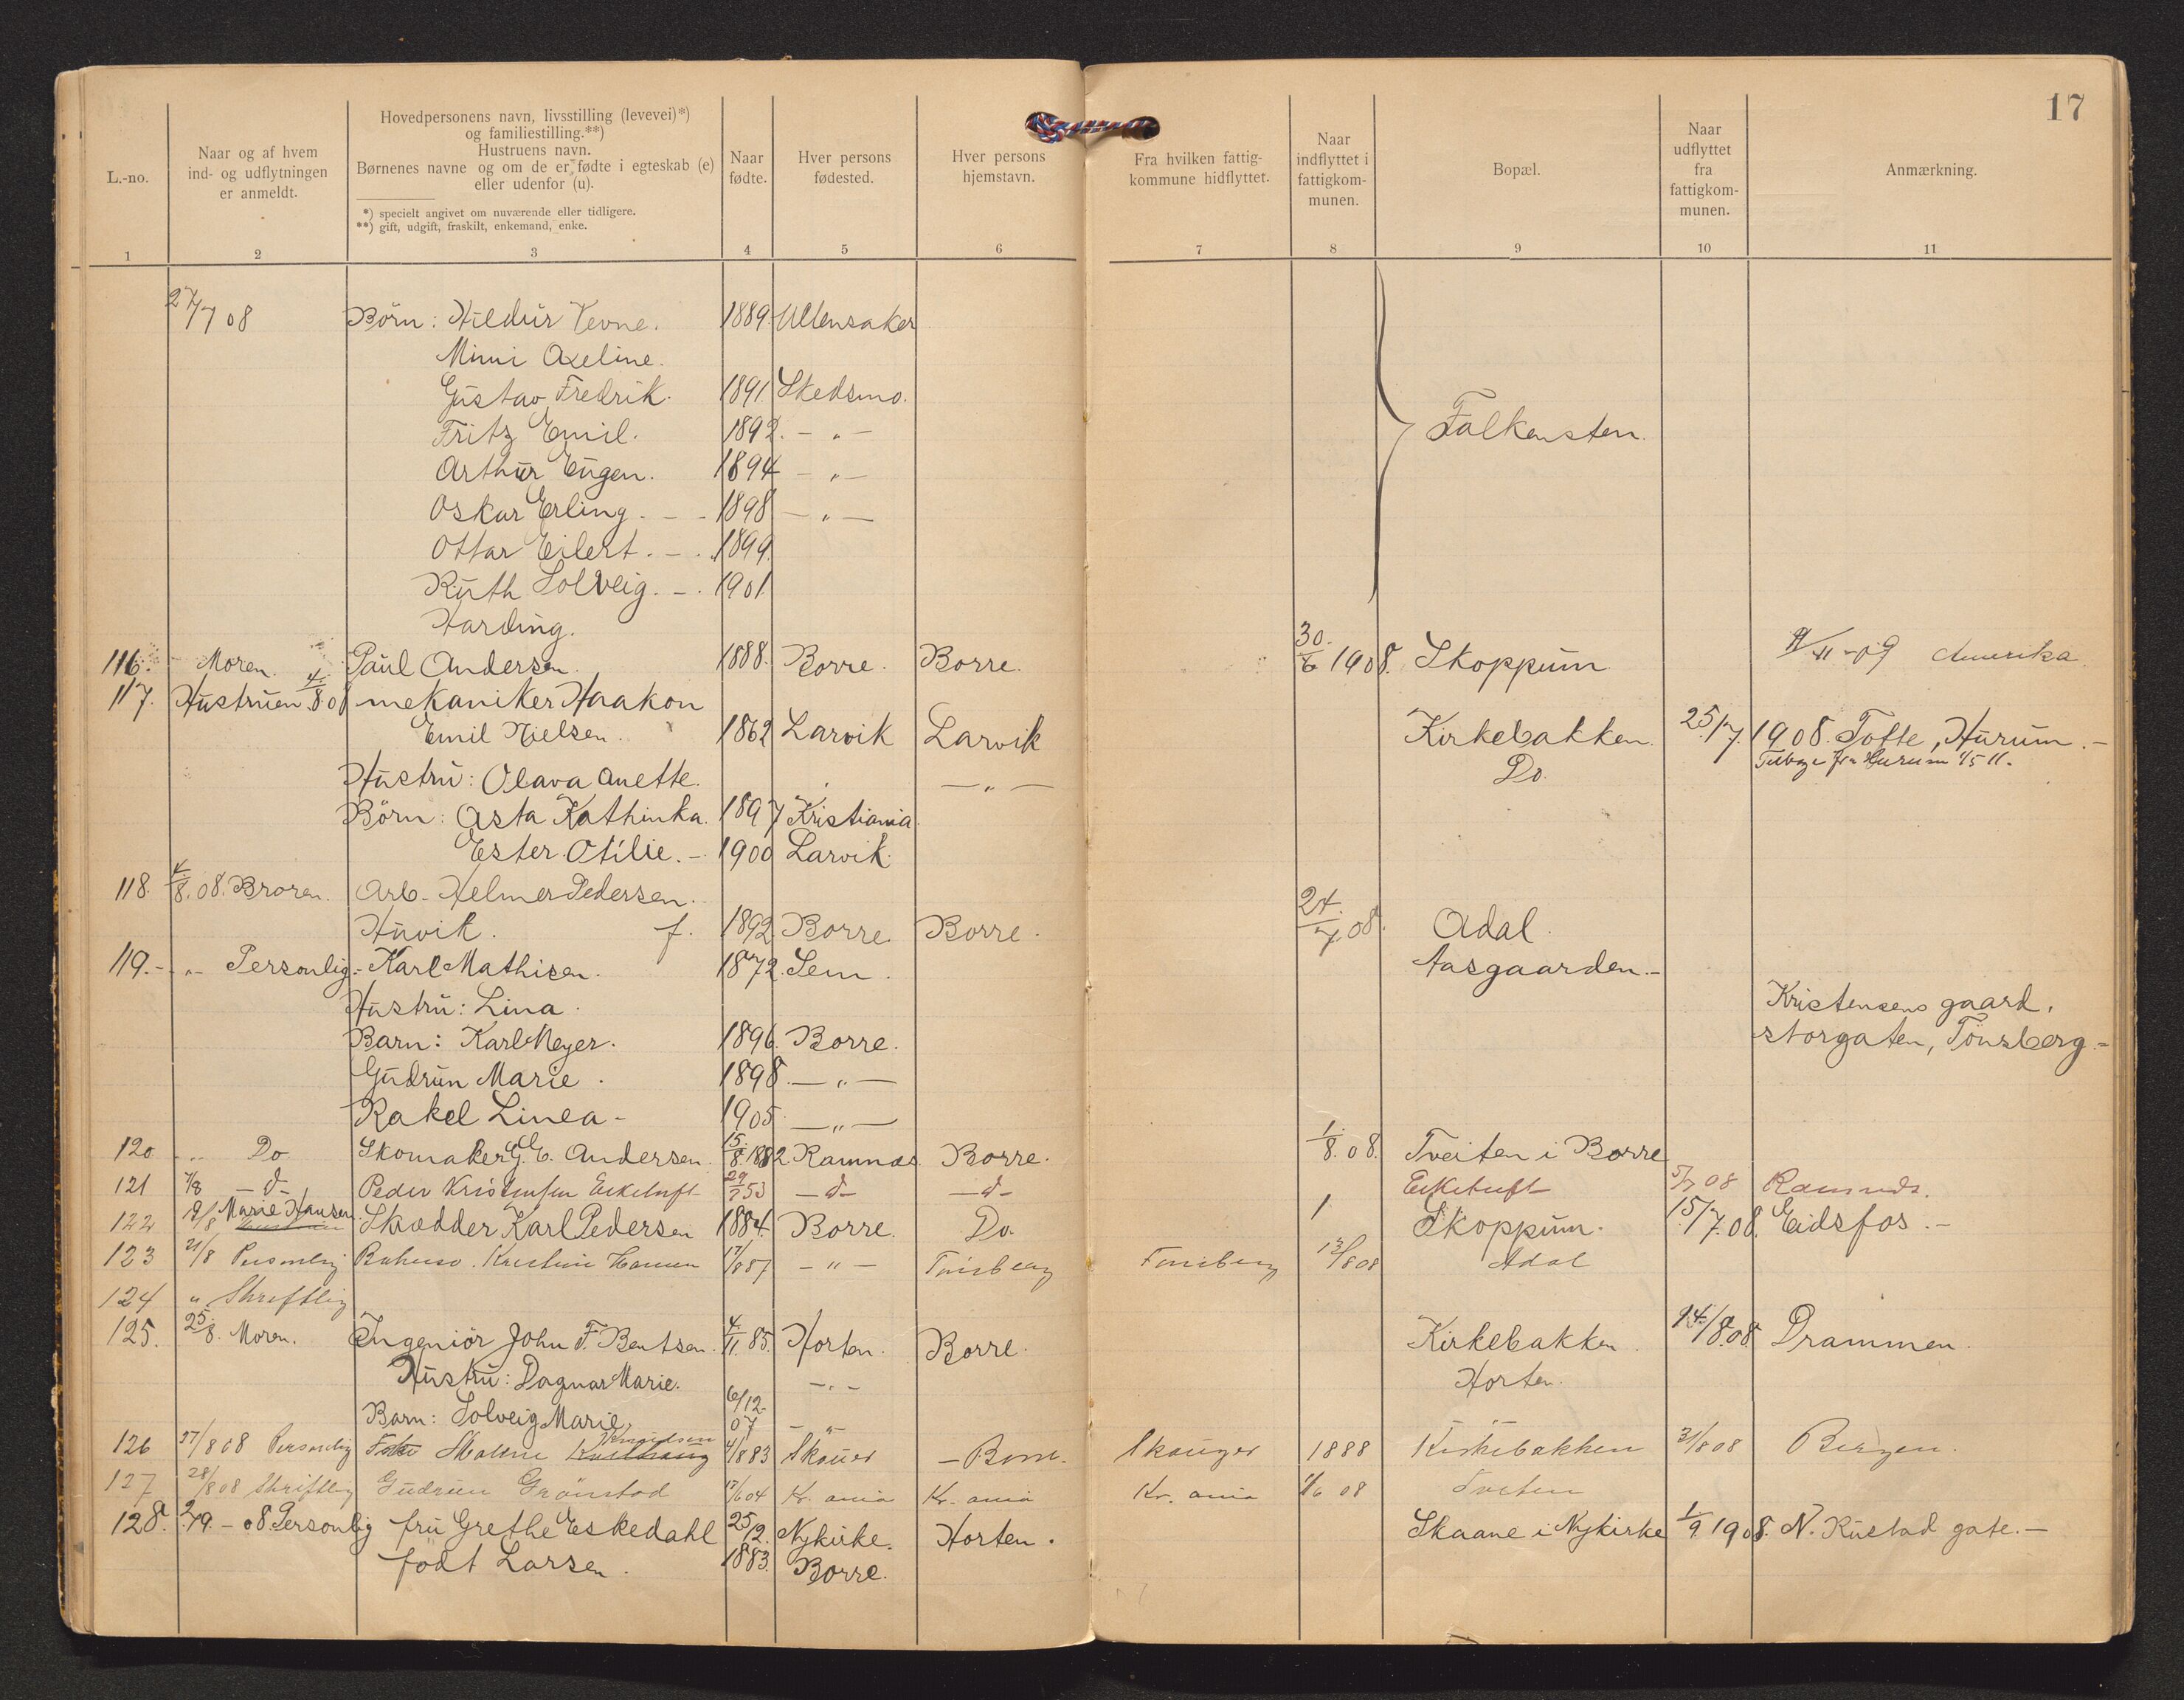 17
L.-no.
Naar og af hvem
ind- og udflytningen
er anmeldt.
Hovedpersonens navn, livsstilling (levevei)*)
og familiestilling.**)
Hustruens navn.
Børnenes navne og om de er fødte i egteskab (e)
eller udenfor (u).
*) specielt angivet om nuværende eller tidligere.
**) gift, udgift, fraskilt, enkemand, enke.
Naar
fødte.
Hver persons
fødested.
Hver persons
hjemstavn.
Fra hvilken fattig-
kommune hidflyttet.
Naar
indflyttet i
fattigkom-
munen.
Bopæl.
Naar
udflyttet
fra
fattigkom-
munen.
Anmærkning.
1 2 3 4 5 6 7 8 9 10 11
27/7 08 Börn: Hildur 1889. Ullensaker
Mimi Axeline.
Gustav Fredrik. 1891. Skedsmo.
Fritz Emil. 1892. - " - Falkensten.
Arthur Eugen. 1894 - " -
Oskar Erling. - - 1898 - " -
Ottar Eilert. - . 1899.
Ruth Solveig. - . 1901
Harding.
116. Moren. Paul Andersen. 1888. Borre. Borre. 30./6 1908. Skoppum 11-09 Amerika.
117. Hustruen 4./8.08 mekaniker Haakon
Emil Nielsen. 1862 Larvik Larvik Kirkebakken. 25./7. 1908. Tofte, Hurum. -
Hustru: Olava Anette. " - " - Do. fra Hurum 1/5 11.
Börn: Asta Kathinka. 1897 Kristiania.
Ester Otilie. - 1900 Larvik.
118. 4./8. 08. Broren. Arb. Helmer Pedersen.
Huvik. f. 1892 Borre Borre. 24./7. 08. Adal.
119. - " - Personlig. - Karl Mathisen. 1872. Sem. Aasgaarden. -
Hustru: Lina. Kristensens gaard.
Barn: Karl Meyer. 1896. Borre. storgaten, Tönsberg. -
Gudrun Marie. 1898. - " -
Rakel Linea - 1905 - " -
120 " Do Skomaker G. E. Andersen. 15./8. 1882 Ramnæs Borre. 1./8. 08. Tveiten i Borre
121 7/8 - d - Peder Kristensen Eskeluft 29/7 53 - d - - d - Eskeluft 5/7 08 Ramnæs.
122 19/8 Marie Hansen Skrædder Karl Pedersen 1884. Borre. Do. 1 Skoppum. 15/7. 08. Eidsfos. -
123 21/8 Personlig Kristine Hansen 17/8 87 - " - Tönsberg Tönsberg 13/8 08 Adal
124 " Skriftlig
125. 25./8. Moren. Ingeniör John F. Bentsen. 4./11. 85. Horten. Borre. Kirkebakken. 14./8.08. Drammen.
Hustru: Dagnar Marie. - " - Horten.
Barn: Solveig Marie, 6/12. 07 - " -
126 27/8 08 Personlig Knudsen 4/8 83 Skouer - Borre. Skouger 1888 Kirkebakken 31/8 08 Bergen.
127 28/8 08 Skriftlig Gudrun Grönstad 17/6 04 Kr. ania Kr. ania Kr. ania 1/6 08 Tveten
128. 2./9. - 08. Personlig fru Grethe Eskedahl 25/12. Nykirke. Horten. Skaane i Nykirke 1/9. 1908. N. Rustad gate. -
födt Larsen. 1883. Borre.